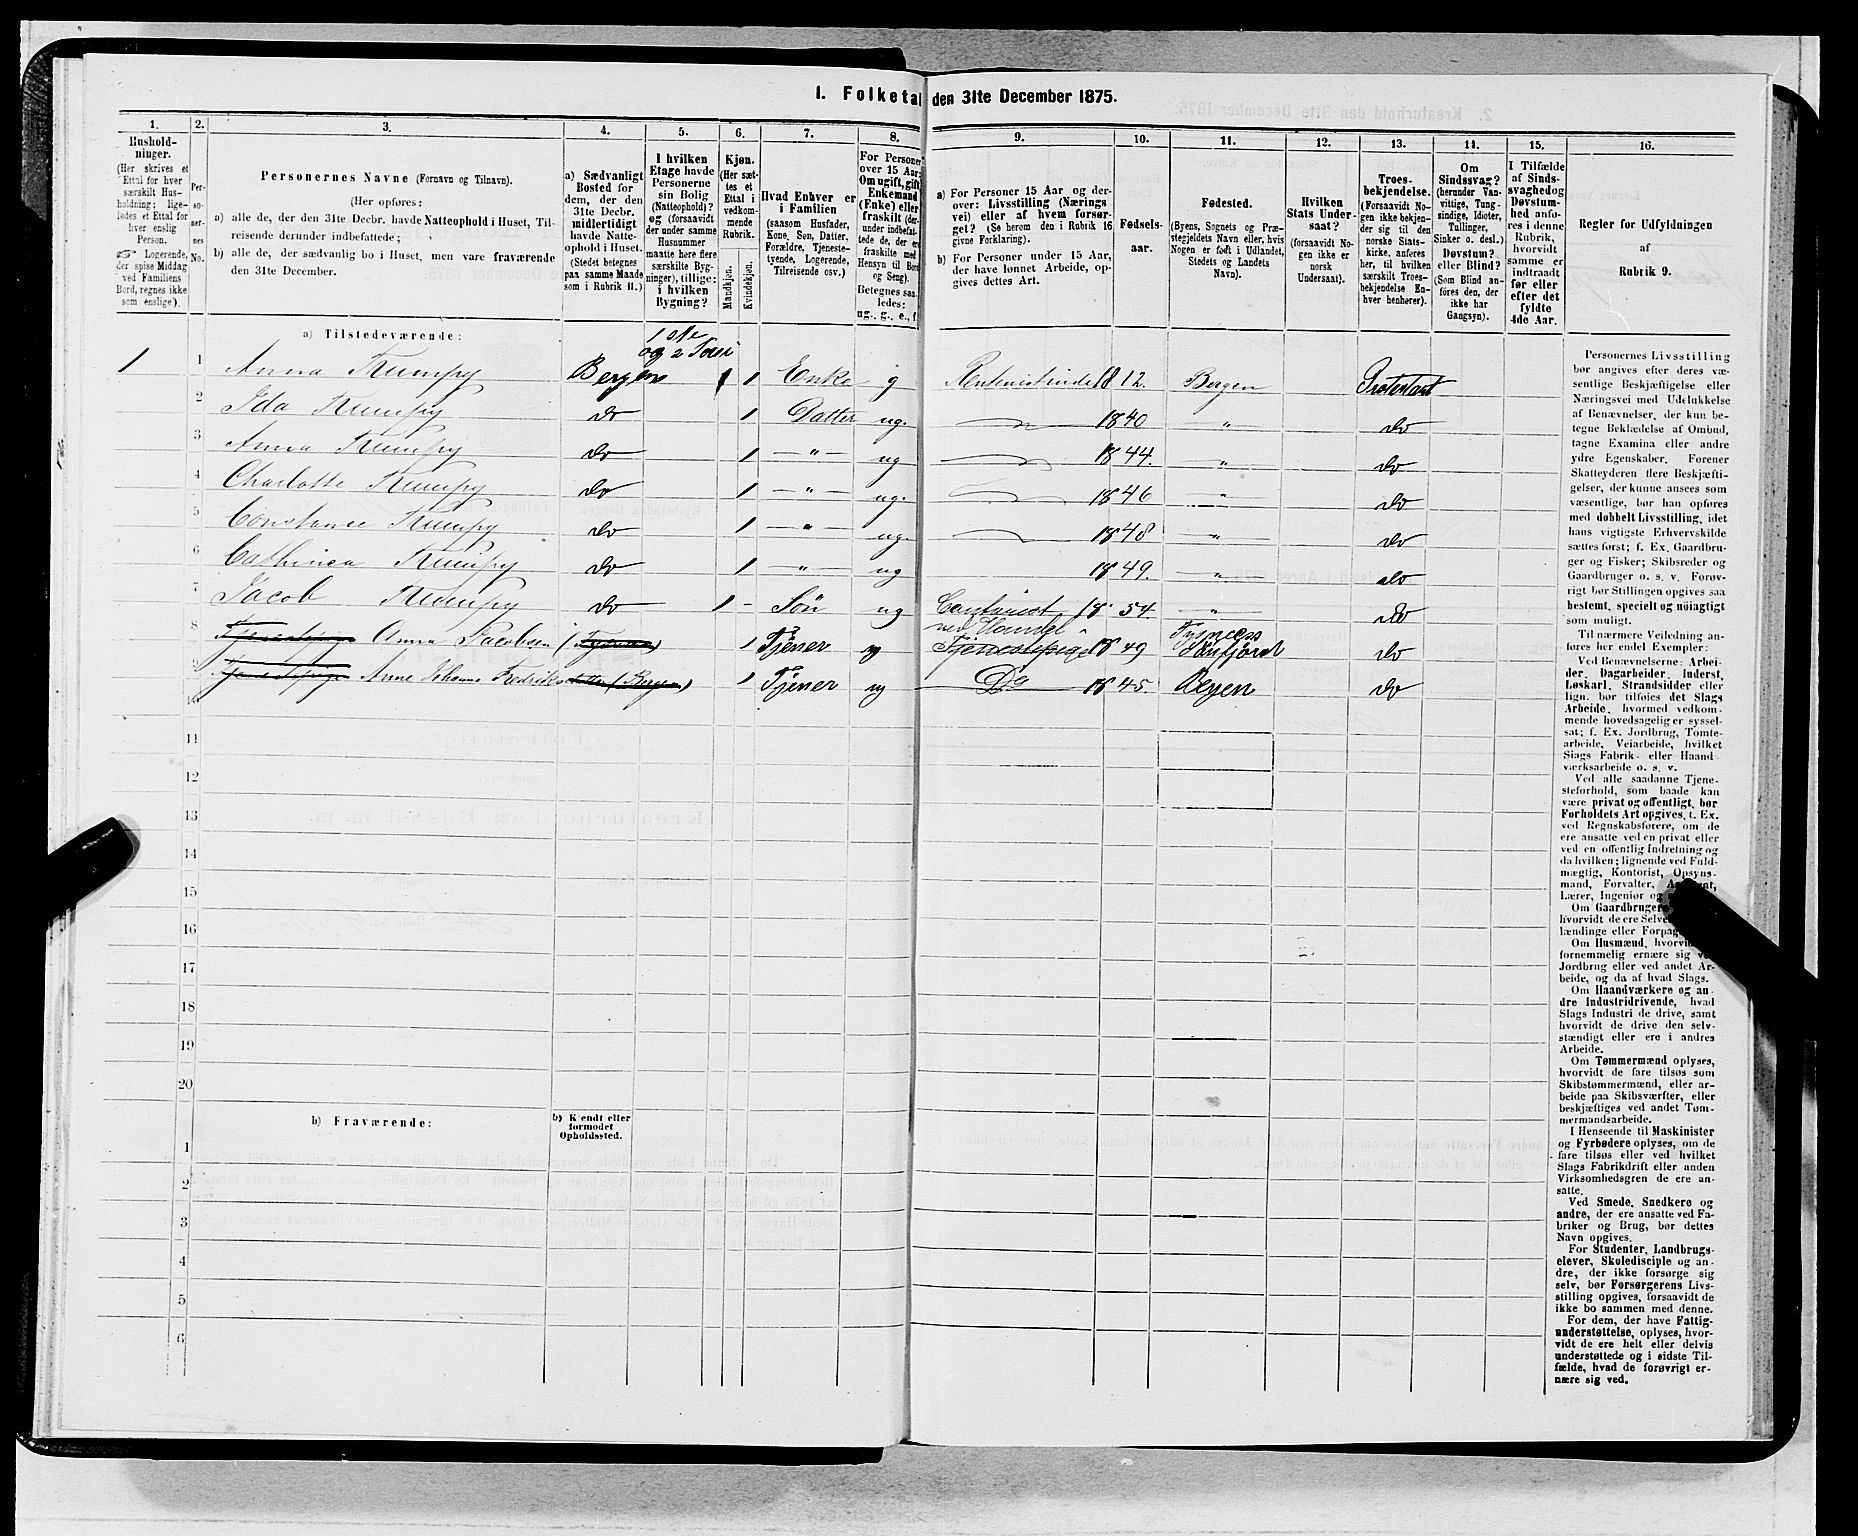 I. Folketal den 31te December 1875.
1. 2. 3. 4. 5. 6. 7. 8. 9. 10. 11. 12. 13. 14. 15. 16.
Hushold-
ninger.
(Her skrives et
Ettal for hver
særskilt Hus-
holdning; lige-
ledes et Ettal for
hver enslig
Person.
☞ Logerende,
der spise Middag
ved Familiens
Bord, regnes ikke
som enslige).
Per-
so-
ner-
nes
No.
Personernes Navne (Fornavn og Tilnavn).
(Her opføres:
a) alle de, der den 31te Decbr. havde Natteophold i Huset, Til-
reisende derunder indbefattede;
b) alle de, der sædvanlig bo i Huset, men vare fraværende
den 31te December.
a) Sædvanligt
Bosted for
dem, der den
31te Decbr.
midlertidigt
havde Natte-
ophold i Huset.
(Stedet betegnes
paa samme Maade
som i Rubrik 11.)
I hvilken
Etage havde
Personerne
sin Bolig
(Natteophold)?
og (forsaavidt
der under samme
Husnummer
maatte høre flere
særskilte Byg-
ninger), tillige:
i hvilken
Bygning?
Kjøn.
(Her sæt-
tes et
Ettal i
vedkom-
mende
Rubrik.
Mandkjøn.
Kvindekjøn.
Hvad Enhver er
i Familien
(saasom Husfader,
Kone, Søn, Datter,
Forældre, Tjeneste-
tyende, Logerende,
Tilreisende osv.)
For Personer
over 15 Aar:
Om ugift, gift,
Enkemand
(Enke) eller
fraskilt (der-
under indbefat-
tede de, der er
fraskilte med
Hensyn til Bord
og Seng).
Betegnes saa-
ledes:
ug., g., e., f.
a) For Personer 15 Aar og der-
over: Livsstilling (Nærings
vei) eller af hvem forsør-
get? (Se herom den i Rubrik 16
givne Forklaring).
b) For Personer under 15 Aar,
der have lønnet Arbeide, op-
gives dettes Art.
Fødsels-
aar.
Fødested.
(Byens, Sognets og Præ-
stegjeldets Navn eller, hvis
Nogen er født i Udlandet,
Stedets og Landets
Navn).
Hvilken
Stats Under-
saat?
(forsaavidt No-
gen ikke er
norsk
Undersaat).
Troes-
bekjendelse.
(Forsaavidt Nogen
ikke bekjen-
der sig til den
norske Stats-
kirke, anføres
her, til hvilken
særskilt Troes-
bekjendelse En-
hver henhører).
Om
Sindssvag?
(herunder Van-
vittige, Tung-
sindige, Idioter,
Tullinger,
Sinker o. desl.)
Døvstum?
eller Blind?
(Som Blind an-
føres den, der
ikke har
Gangsyn).
I Tilfælde
af Sinds-
svaghed og
Døvstum-
hed anfø-
res i denne
Rubrik,
hvorvidt
samme er
indtraadt
før eller
efter det
fyldte
4de Aar.
Regler for Udfyldningen
af
Rubrik 9.
a) Tilstedeværende:
1ste
og 2
1 1 Anna Krumpy Bergen 1 Enke g 1812. Bergen Protestant
2 Ida Krumpy do 1 Datter ug. 1840 — " — do
3 Anna Krumpy do 1 — " — ug 1844. " do
4 Charlotte Krumpy do 1 — " — ug. 1846 — " — do
5 Constance Krumpy do 1 — " — ug. 1848 — " — do
6 Cathinca Krumpy do 1 — " — ug 1849. — " — do
7 Jacob Krumpy do 1 - Søn ug Contorist 1854. — " — do
ved Handel
8 Tjenestepige Anna Jacobsen 1 Tjener ug Tjenestepige 1849 do
9 Tjenestepige Anne Johanne Fredriks datter (Bergen) 1 Tjener ug Do 1845. do
10
11
12
13
14
15
16
17
18
19
20
b) Fraværende:
b) Kjendt eller
formodet
Opholdssted.
1
2
3
4
5
6
Personernes Livsstilling
bør angives efter deres væ-
sentlige Beskjæftigelse eller
Næringsvei med Udelukkelse
af Benævnelser, der kun be-
tegne Beklædelse af Ombud,
tagne Examina eller andre
ydre Egenskaber. Forener
Skatteyderen flere Beskjæfti-
gelser, der kunne ansees som
væsentlige, bør han opføres
med dobbelt Livsstilling, idet
hans vigtigste Erhvervskilde
sættes først; f. Ex. Gaardbru-
ger og Fisker; Skibsreder og
Gaardbruger o. s. v. Forøv-
rigt bør Stillingen opgives saa
bestemt, specielt og nøiagtigt
som muligt.
Til nærmere Veiledning an-
føres her endel Exempler:
Ved Benævnelserne: Arbei-
der, Dagarbeider, Inderst,
Løskarl, Strandsidder eller
lign. bør tilføies det Slags
Arbeide, hvormed vedkom-
mende hovedsagelig er syssel-
sat; f. Ex. Jordbrug, Tomte-
arbeide, Veiarbeide, hvilket
Slags Fabrik- eller Haand
værksarbeide o. s. v.
Ved alle saadanne Tjene-
steforhold, som baade kan
være privat og offentligt, bør
Forholdets Art opgives, t. Ex.
ved Regnskabsførere, om de
ere ansatte ved en privat eller
ved en offentlig Indretning og
da hvilken; lignende ved Fuld-
mægtig, Kontorist, Opsyns-
mand, Forvalter,
Lærer, Ingeniør og
Om Gaardbruger
hvorvidt de ere
lændinge eller
Om Husmænd,
fornemmelig ernære sig
Jordbrug eller ved andet Ar-
beide, og da af hvad Slags.
Om Haandværkere og an
dre Industridrivende, hvad
Slags Industri de drive, samt
hvorvidt de drive den selv-
stændigt eller ere i andres
Arbeide.
Om Tømmermænd oplyses,
hvorvidt de fare tilsøs som
Skibstømmermænd, eller ar-
beide paa Skibsværfter, eller
beskjæftiges ved andet Tøm-
mermandsarbeide.
I Henseende til Maskinister
og Fyrbødere oplyses, om de
fare tilsøs eller ved hvilket
Slags Fabrikdrift eller anden
Virksomhedsgren de ere an-
satte.
Ved Smede, Snedkere og
andre, der ere ansatte ved Fa-
briker og Brug, bør dettes
Navn opgives.
For Studenter, Landbrugs-
elever, Skoledisciple og an-
dre, der ikke forsørge sig
selv, bør Forsørgerens Livs-
stilling opgives, forsaavidt de
ikke bo sammen med denne.
For dem, der have Fattig-
understøttelse, oplyses, hvor-
vidt de ere helt eller delvis
understøttede og i sidste Til-
fælde, hvad de forøvrigt er-
nære sig ved.